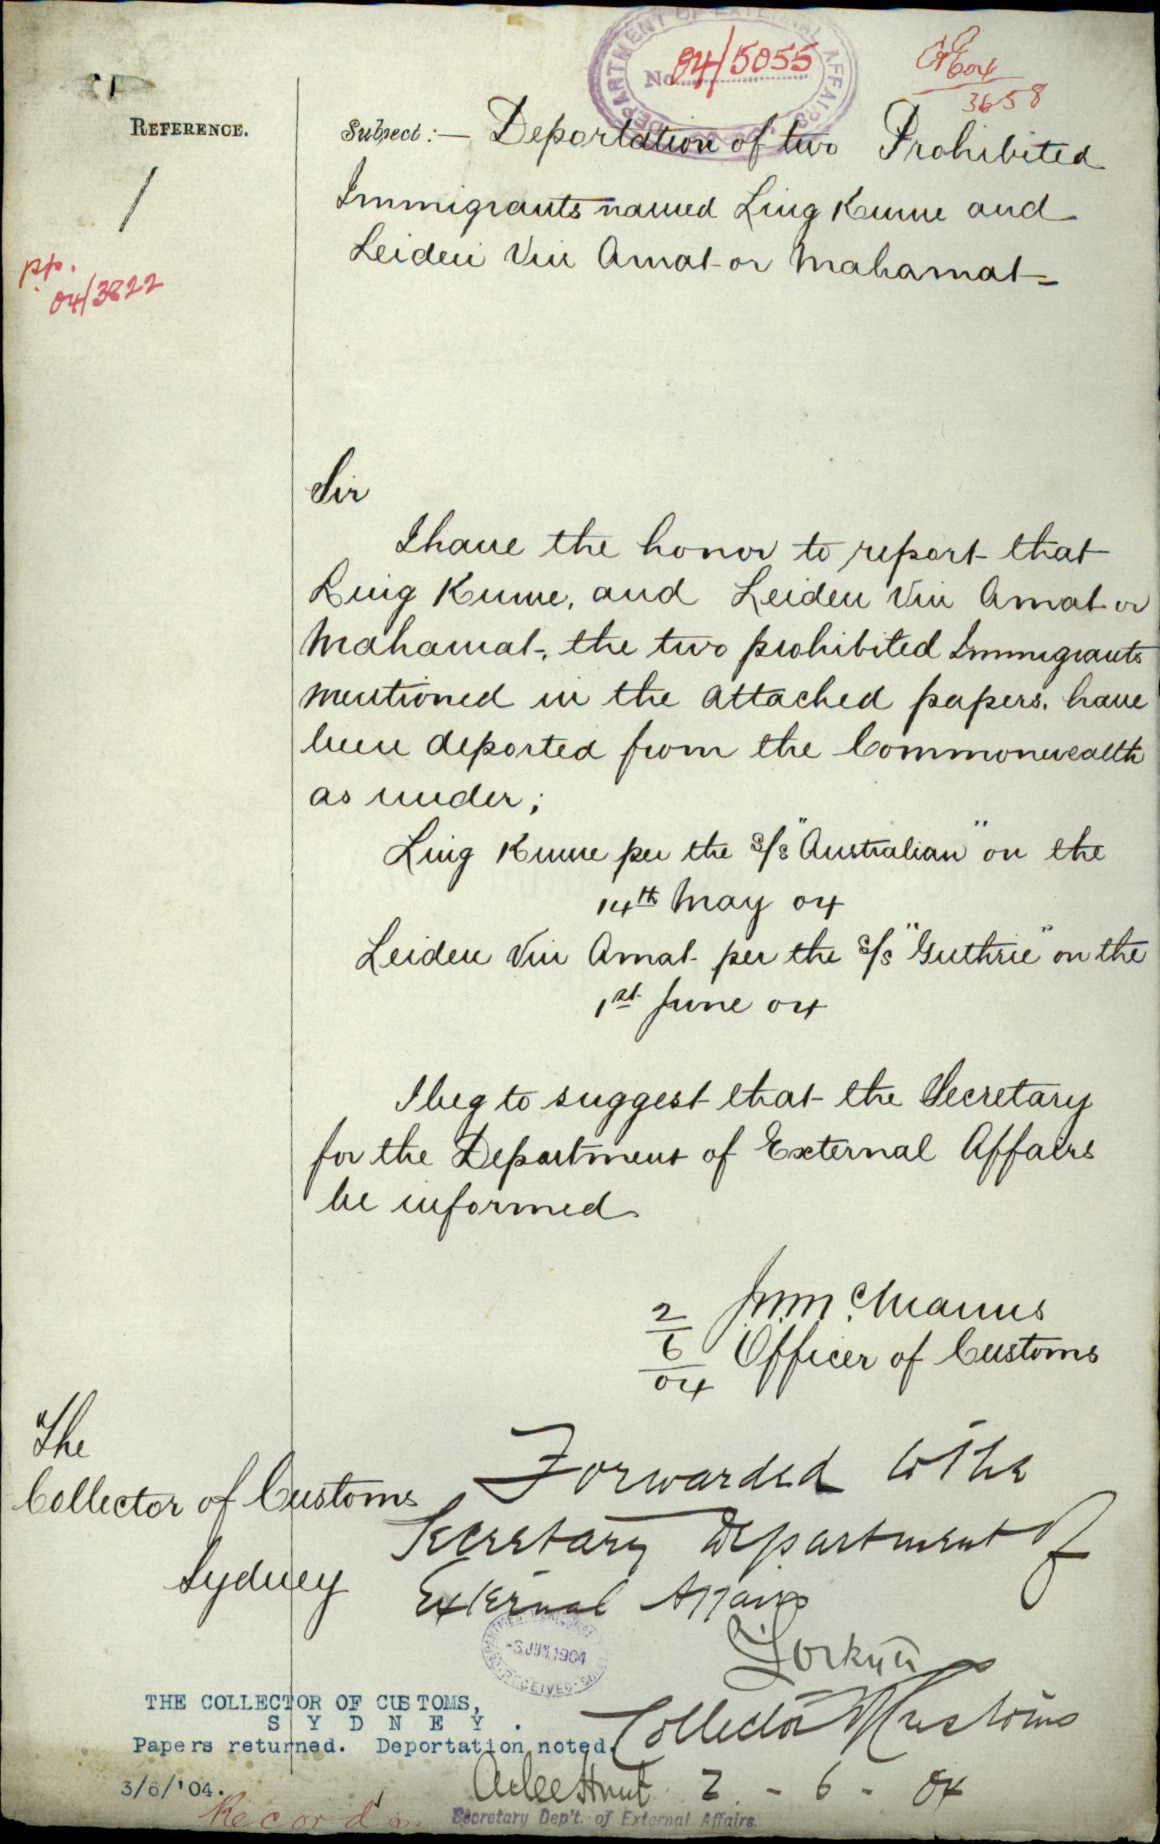 DEPARTMENT OF EXTERNAL AFFAIRS
No. 04/5055
3658
REFERENCE.
1
pp.
04/3822
Subject:— Deportation of two Prohibited
Immigrants named Ling Kume and
Leiden Vin Amat or Mahamat
Sir
I have the honor to report that
Ling Kume, and Leiden Vin Amat or
Mahamat, the two prohibited Immigrants
mentioned in the attached papers, have
been deported from the Commonwealth
as under;
Ling Kume per the s/s "Australian" on the
14th May 04
Leiden Vin Amat per the s/s "Guthrie" on the
1st June 04
I beg to suggest that the Secretary
for the Department of External Affairs
be informed
McManus
2/6/04 Officer of Customs
The
Collector of Customs
Sydney
Forwarded to the
Secretary Department of
External Affairs
Collector of Customs
2 - 6 - 04
-3 JUN 1904
RECEIVED
THE COLLECTOR OF CUSTOMS,
SYDNEY.
Papers returned. Deportation noted.
3/6/'04.
Atlee Hunt
Secretary Dep't. of External Affairs.
Records.